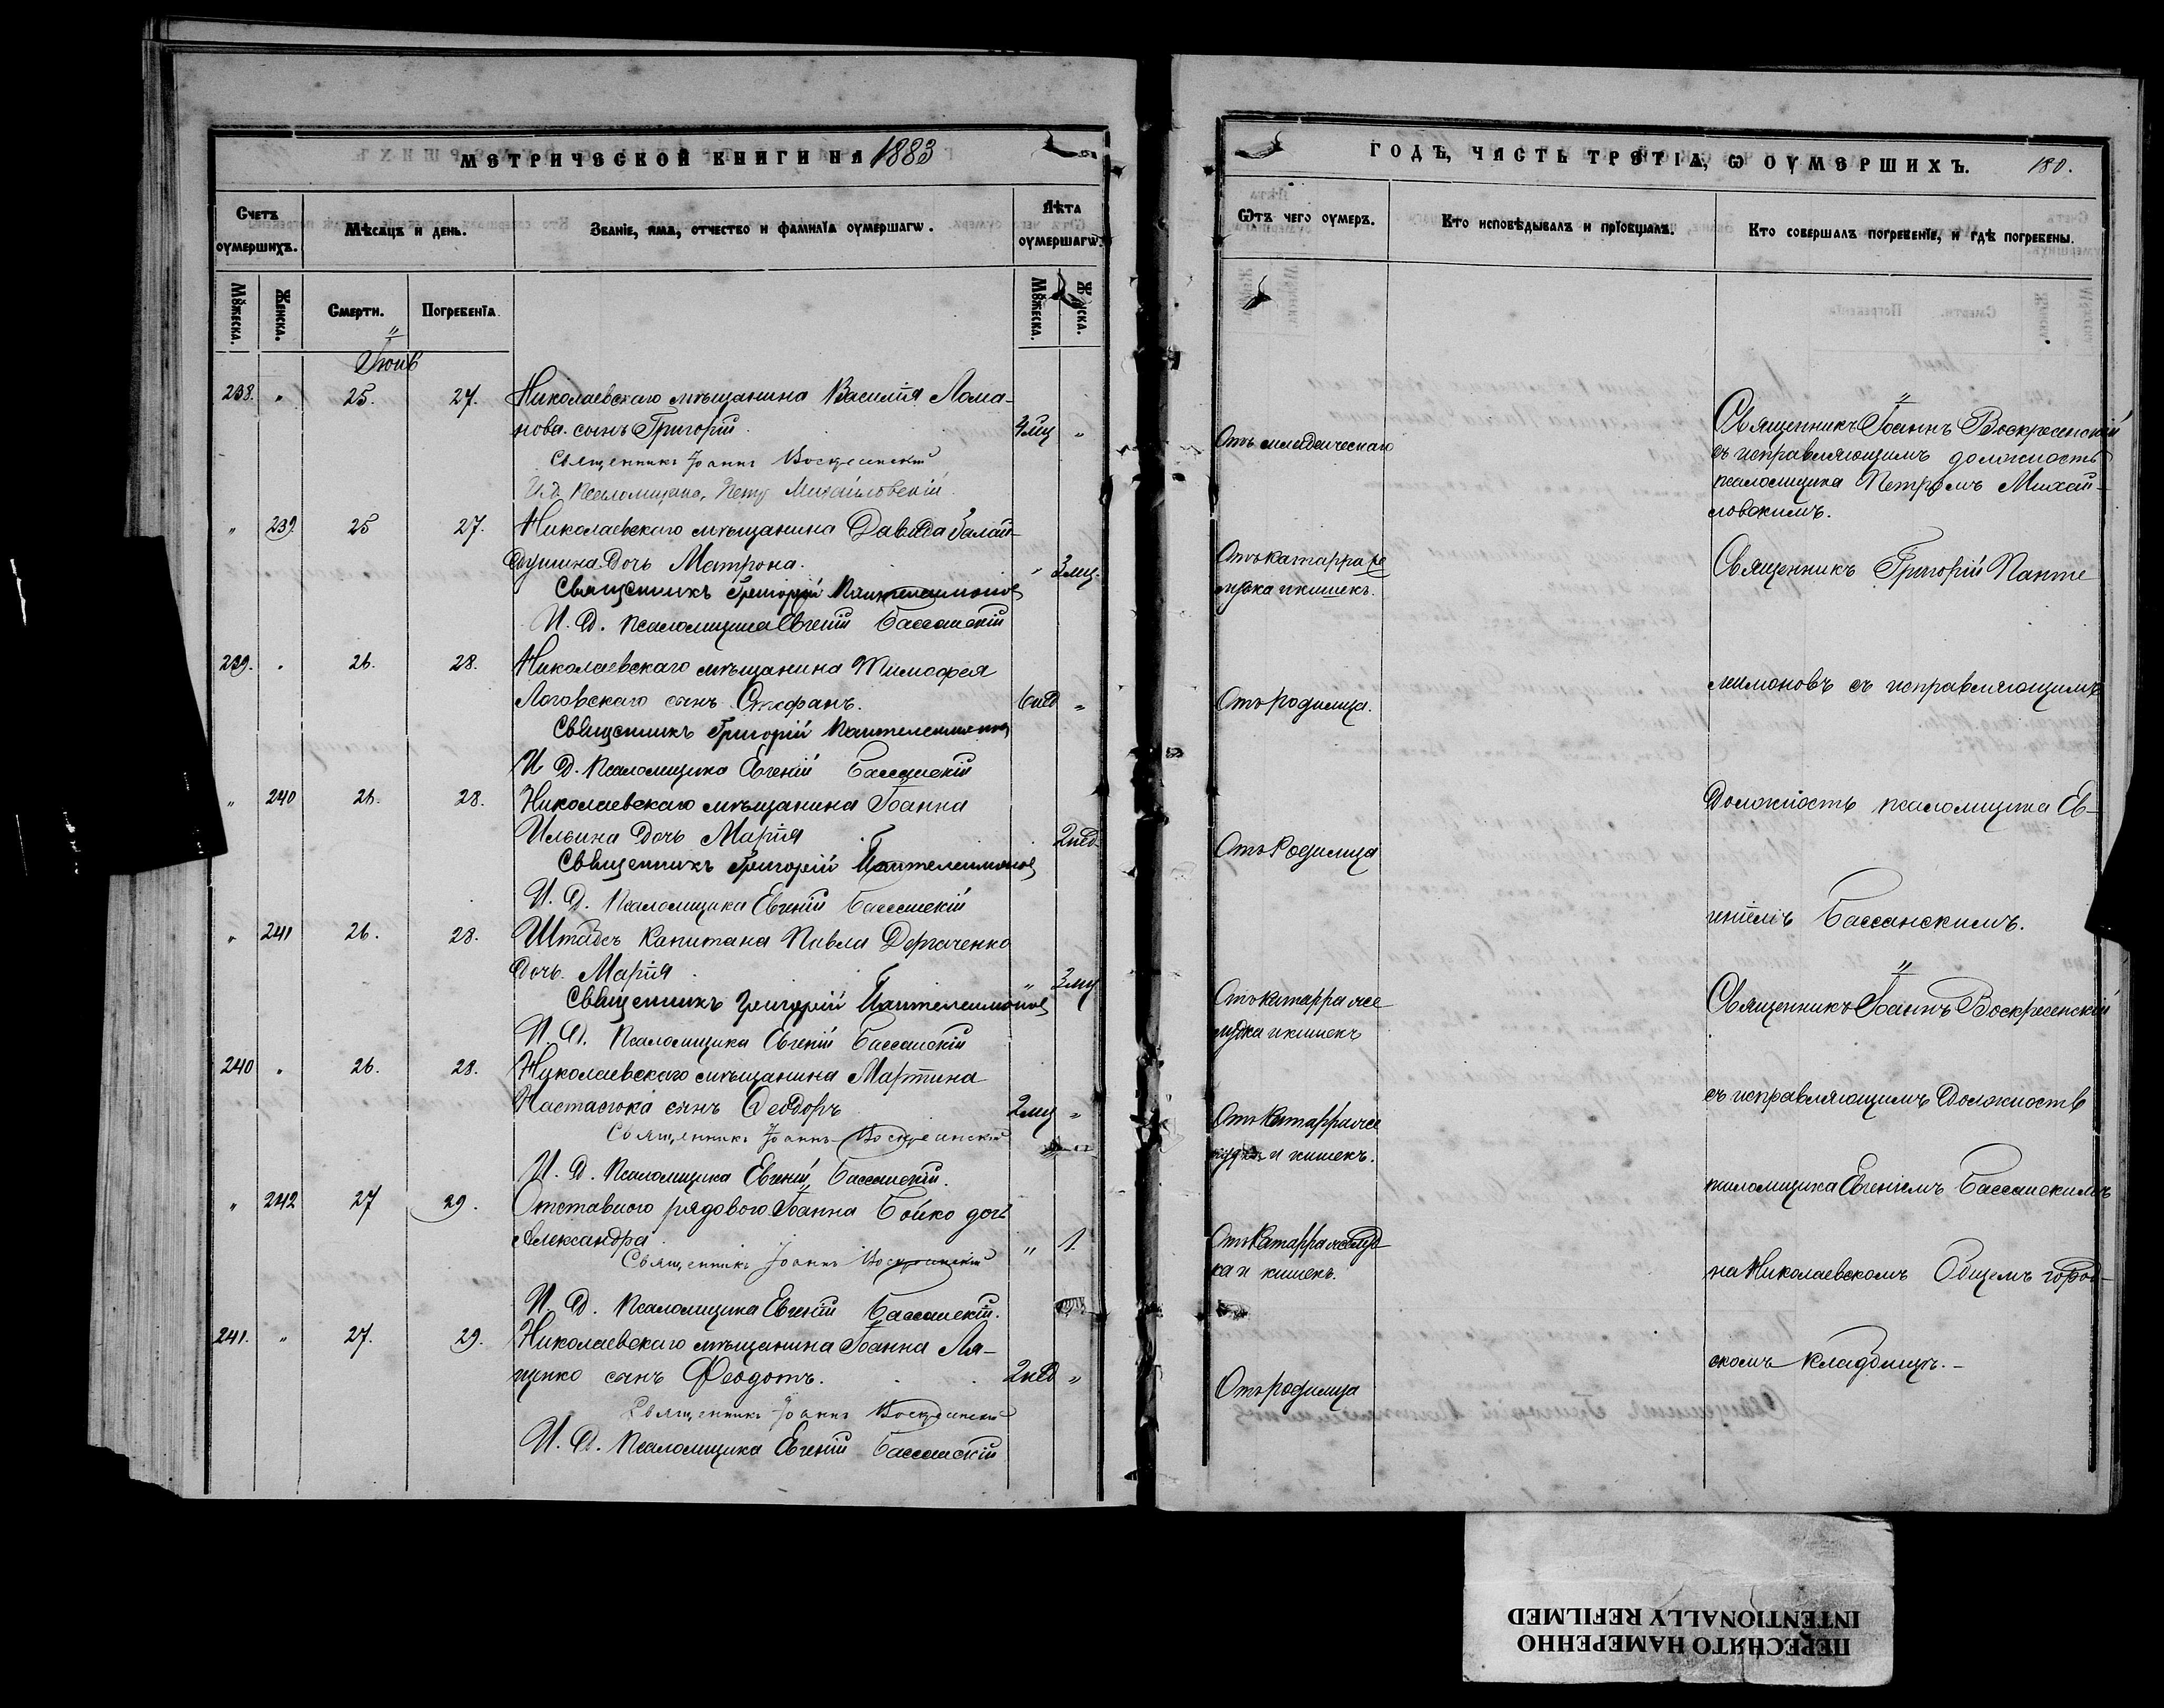 МЕТРИЧЕСКОЙ КНИГИ НА 1883
Счетъ оумершихъ.
Мѣсяцъ и день.
Званіе, имя, отчество и фамиліа оумершагѡ.
Лѣта оумершагѡ.
Мꙋжеска.
Женска.
Смерти.
Погребеніа.
Мꙋжеска.
238. " 25. 27. Николаевскаго мѣщанина Василія Лома-
нова сынъ Григорій. 4 мц "
Священникъ Іоаннъ Воскресенскій
И.д. Псаломщика, Петръ Михайловскій.
" 239. 25 27. Николаевскаго мѣщанина Давида
дочь Матрона. " 3 мц.
Священникъ Григорій Пантелеимоновъ
И. Д. Псаломщика Евгеній Бассанскій
239. " 26. 28. Николаевскаго мѣщанина Тимофея
Логовскаго сынъ Стефанъ. 6 нед "
Священникъ Григорій Пантелеимоновъ
И. Д. Псаломщика Евгеній Бассанскій
" 240 26. 28. Николаевскаго мѣщанина Іоанна
Ильина дочь Марія 2 нед.
Священникъ Григорій Пантелеимоновъ
И. Д. Псаломщика Евгеній Бассанскій
" 241 26. 28. Штабсъ Капитана Павла Дергаченко
дочь Марія. " 3 мц
Священникъ Григорій Пантелеимоновъ
И. Д. Псаломщика Евгеній Бассанскій
240 " 26. 28. Николаевскаго мѣщанина Мартина
Настасюка сынъ Феодоръ 2 мц "
Священникъ Іоаннъ Воскресенскій
И. Д. Псаломщика Евгеній Бассанскій.
" 242 27 29. Отставного рядового Іоанна Бойко дочь
Александра " 1.
Священникъ Іоаннъ Воскресенскій
И. Д. Псаломщика Евгеній Бассанскій.
241. " 27. 29. Николаевскаго мѣщанина Іоанна Ля-
щенко сынъ Феодотъ. 2 нед "
Священникъ Іоаннъ Воскресенскій
И. Д. Псаломщика Евгеній Бассанскій
ГОДЪ, ЧАСТЬ ТРЕТІА, Ѡ ОУМЕРШИХЪ. 180.
Ѿтъ чего оумеръ.
Кто исповѣдывалъ и пріобщалъ.
Кто совершалъ погребеніе, и гдѣ погребены.
Отъ младенческаго
Отъ катарра же
лудка и кишекъ.
Отъ родимца.
Отъ Родимца
Отъ катарра же
лудка и кишекъ
Отъ Катарра же
лудка и кишекъ.
Отъ Катарра желуд
ка и кишекъ.
Отъ родимца
Священникъ Іоаннъ Воскресенскій
съ исправляющимъ должность
псаломщика Петромъ Михай-
ловскимъ.
Священникъ Григорій Панте
леимоновъ съ исправляющимъ
должность псаломщика Ев-
геніемъ Бассанскимъ.
Священникъ Іоаннъ Воскресенскій
съ исправляющимъ должность
псаломщика Евгеніемъ Бассанскимъ
на Николаевскомъ Общемъ город-
скомъ кладбищѣ.-
ПЕРЕСНЯТО НАМЕРЕННО
INTENTIONALLY REFILMED